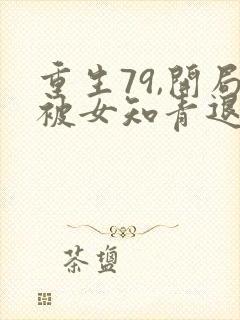 重生79,開局
被女知青退
茶盐